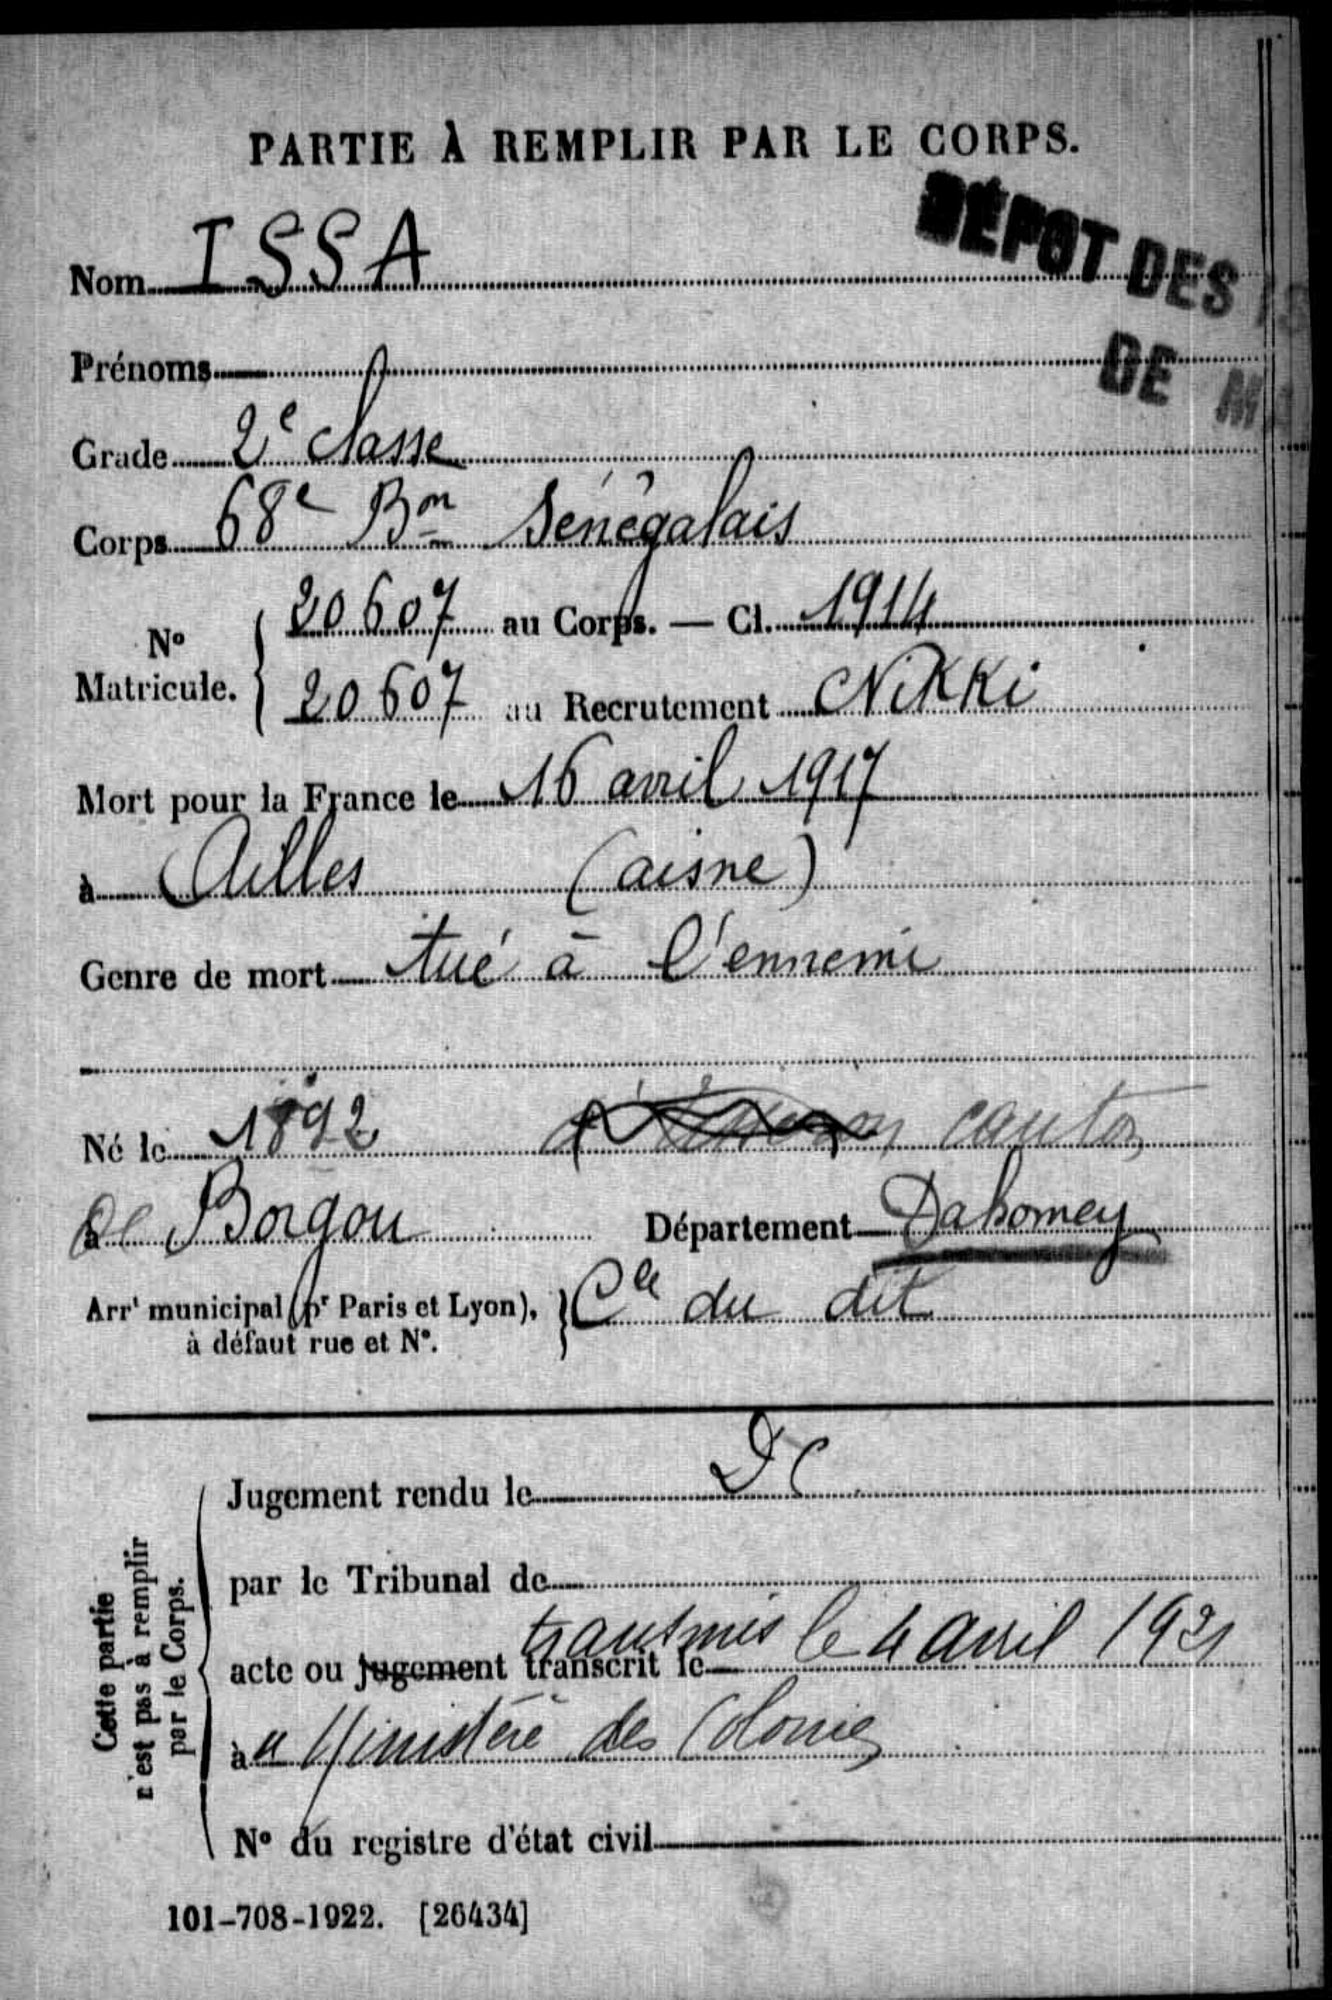 PARTIE À REMPLIR PAR LE CORPS.
DÉPOT DES
DE MA
Nom ISSA
Prénoms
Grade 2e classe
Corps 68e Bon Sénégalais
N° Matricule. { 20607 au Corps. — Cl. 1914
20607 au Recrutement Nikki
Mort pour la France le 16 avril 1917
à Ailles (aisne)
Genre de mort tué à l'ennemi
Né le 1892 canton
de Borgou Département Dahomey
Arrt municipal (pr Paris et Lyon), à défaut rue et N°. } Cie du dit
Jugement rendu le DC
par le Tribunal de
transmis le 4 avril 1931
acte ou jugement transcrit le
à u Ministère des Colonies
N° du registre d'état civil
Cette partie
n'est pas à remplir
par le Corps.
101-708-1922. [26434]